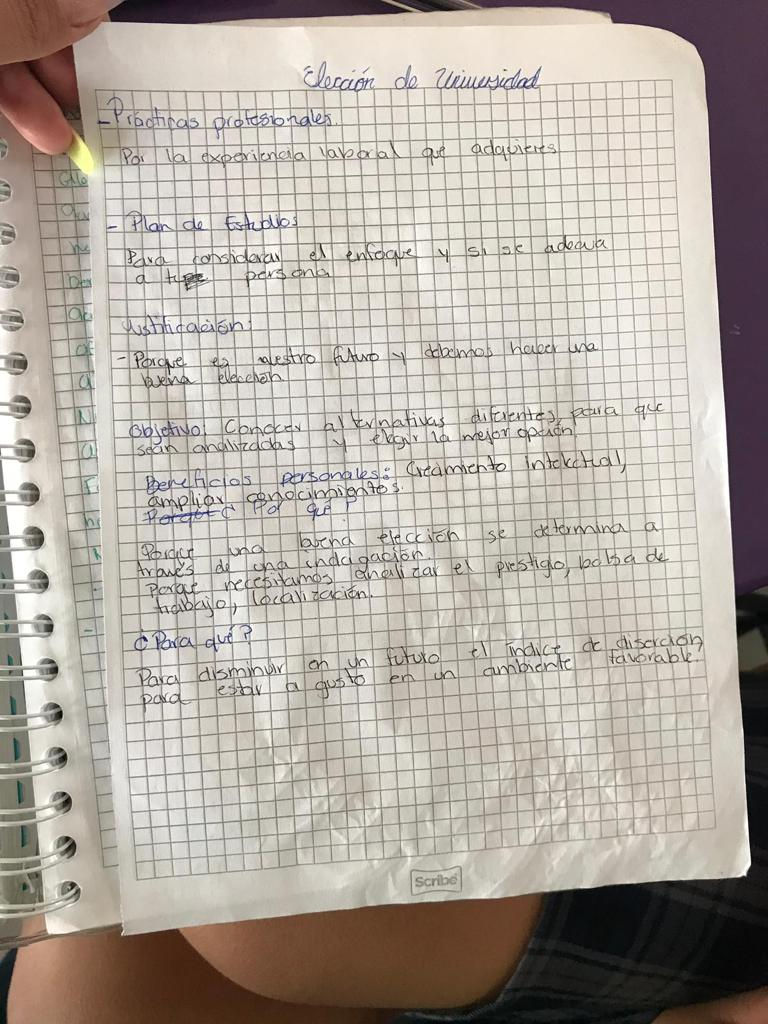 Elección de Universidad
- Prácticas profesionales.
Por la experiencia laboral que adquieres
- Plan de Estudios
Para considerar el enfoque y si se adecua
a tu persona
Justificación:
- Porque es nuestro futuro y debemos hacer una
buena elección
Objetivo: Conocer alternativas diferentes, para que
sean analizadas y elegir la mejor opción.
Beneficios personales: Creamiento intelectual,
ampliar conocimientos.
¿Por qué?
Porque una buena elección se determina a
través de una indagación.
Porque necesitamos analizar el prestigio, bolsa de
trabajo, localización.
¿Para qué?
Para disminuir en un futuro el índice de disercion
para estar a gusto en un ambiente favorable.
Scribe